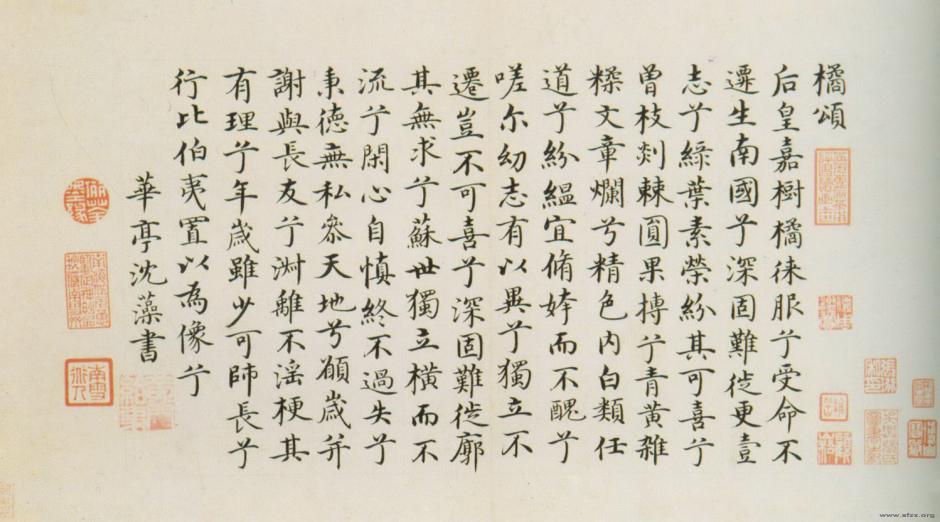 橘頌
后皇嘉樹橘徠服兮受命不
遷生南國兮深固難徙更壹
志兮綠葉素榮紛其可喜兮
曾枝剡棘圓果摶兮青黃雜
糅文章爛兮精色內白類任
道兮紛緼宜脩姱而不醜兮
嗟尔幼志有以異兮獨立不
遷豈不可喜兮深固難徙廓
其無求兮蘇世獨立橫而不
流兮閑心自慎終不過失兮
秉德無私參天地兮願歲并
謝與長友兮淑離不淫梗其
有理兮年歲雖少可師長兮
行比伯夷置以為像兮
華亭沈藻書
www.sfzx.org